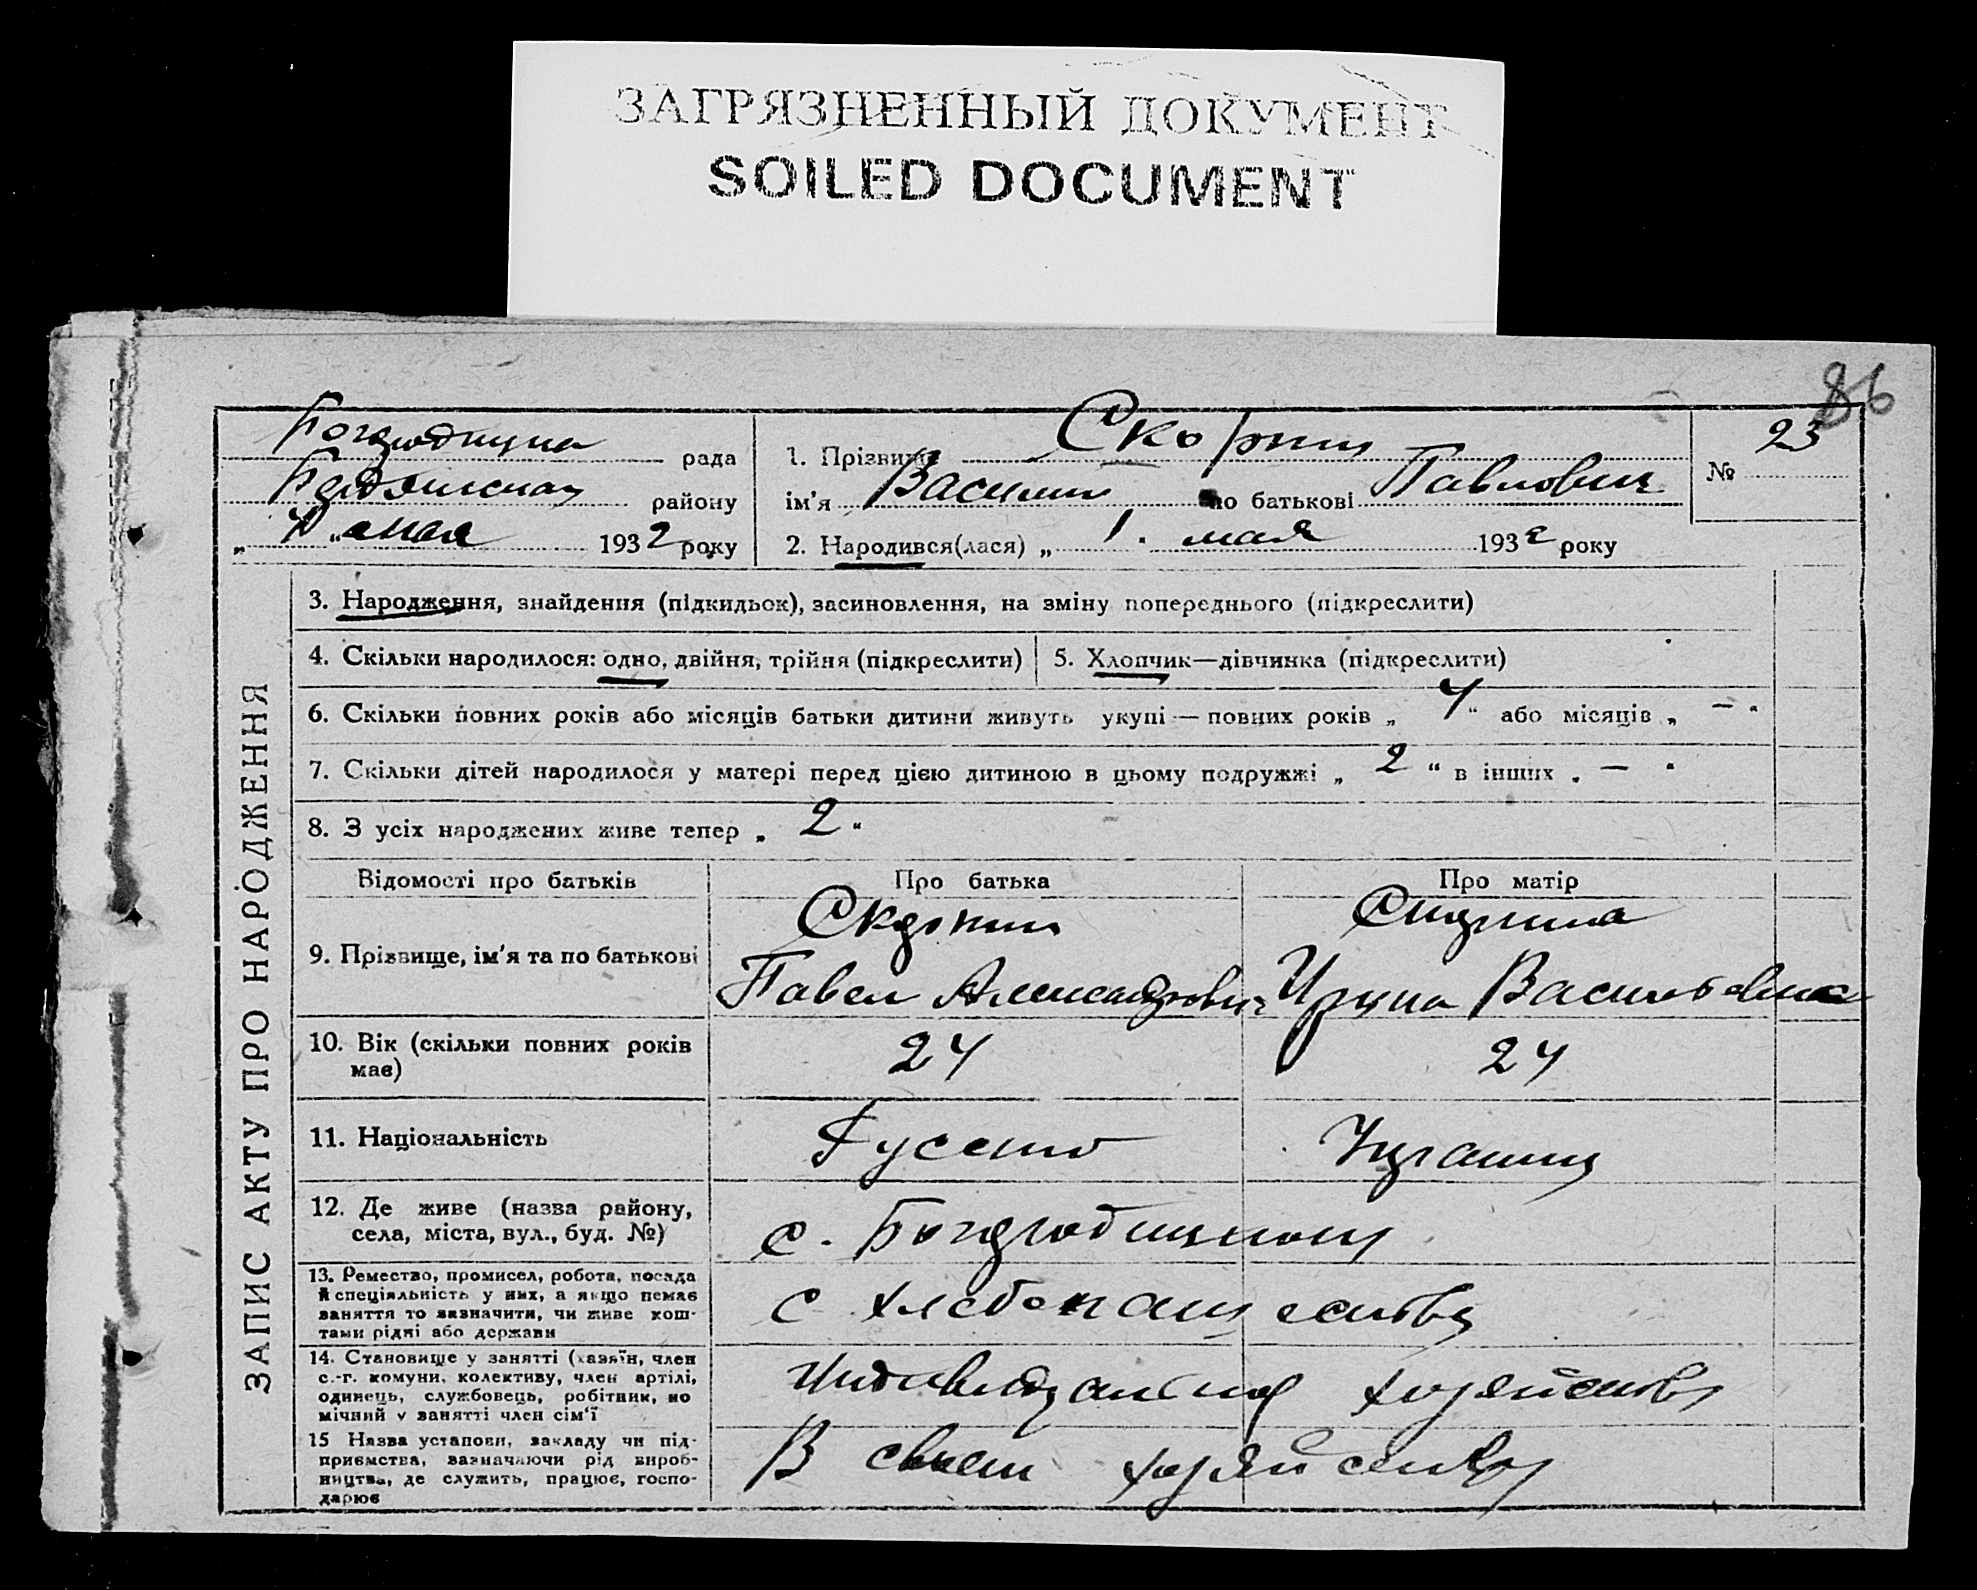 ЗАГРЯЗНЕННЫЙ ДОКУМЕНТ
SOILED DOCUMENT
86
рада
району
мая 1932 року
1. Прізвище
ім'я Василий по батькові Павлович
2. Народився(лася) „ 1. мая 1932 року
№ 23
ЗАПИС АКТУ ПРО НАРОДЖЕННЯ
3. Народження, знайдення (підкидьок), засиновлення, на зміну попереднього (підкреслити)
4. Скільки народилося: одно, двійня, трійня (підкреслити)
5. Хлопчик—дівчинка (підкреслити)
6. Скільки повних років або місяців батьки дитини живуть укупі — повних років „ 4 “ або місяців „ — “
7. Скільки дітей народилося у матері перед цією дитиною в цьому подружжі „ 2 “ в інших „ — “
8. З усіх народжених живе тепер „ 2 “
Відомості про батьків
Про батька
Про матір
9. Прізвище, ім'я та по батькові
Павел Александрович
Ирина Васильевна
10. Вік (скільки повних років
має)
24
24
11. Національність
12. Де живе (назва району,
села, міста, вул., буд. №)
с.
13. Ремество, промисел, робота, посада
й спеціяльність у них, а якщо немає
заняття то зазначити, чи живе кош-
тами рідні або держави
с
14. Становище у занятті (хазяїн, член
с.-г. комуни, колективу, член артілі,
одинець, службовець, робітник, по
мічний у занятті член сім'ї
15 Назва установи, закладу чи під-
приємства, зазначаючи рід вироб-
ництва, де служить, працює, госпо-
дарює
В своем